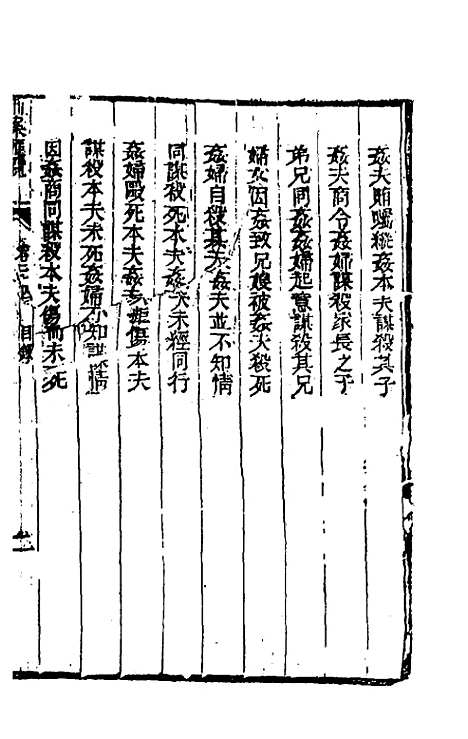 姦夫賄囑縱姦本夫謀殺其子
姦夫商令姦婦謀殺家長之子
弟兄同姦姦婦起意謀殺其兄
婦女因姦致兄嫂被姦夫殺死
姦婦自殺其夫姦夫並不知情
同謀殺死本夫姦夫未經同行
姦婦毆死本夫姦夫拒傷本夫
謀殺本夫未死姦婦不知謀情
因姦商同謀殺本夫傷而未死
目錄